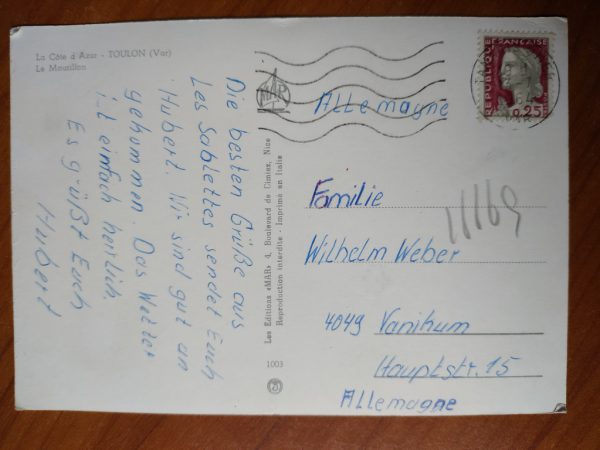 La Côte d'Azur - TOULON (Var)
Le Mourillon
Die besten Grüße aus
Les Sablettes sendet Euch
Hubert. Wir sind gut an
gekommen. Das Wetter
ist einfach herrlich.
Es grüßt Euch
Hubert
Les Editions «MAR» 4, Boulevard de Cimiez, Nice
Reproduction interdite - Imprimé en Italie
1003
MAR
REPUBLIQUE
FRANÇAISE
0,25
Allemagne
Familie
Wilhelm Weber
4049 Vanikum
Hauptstr. 15
Allemagne